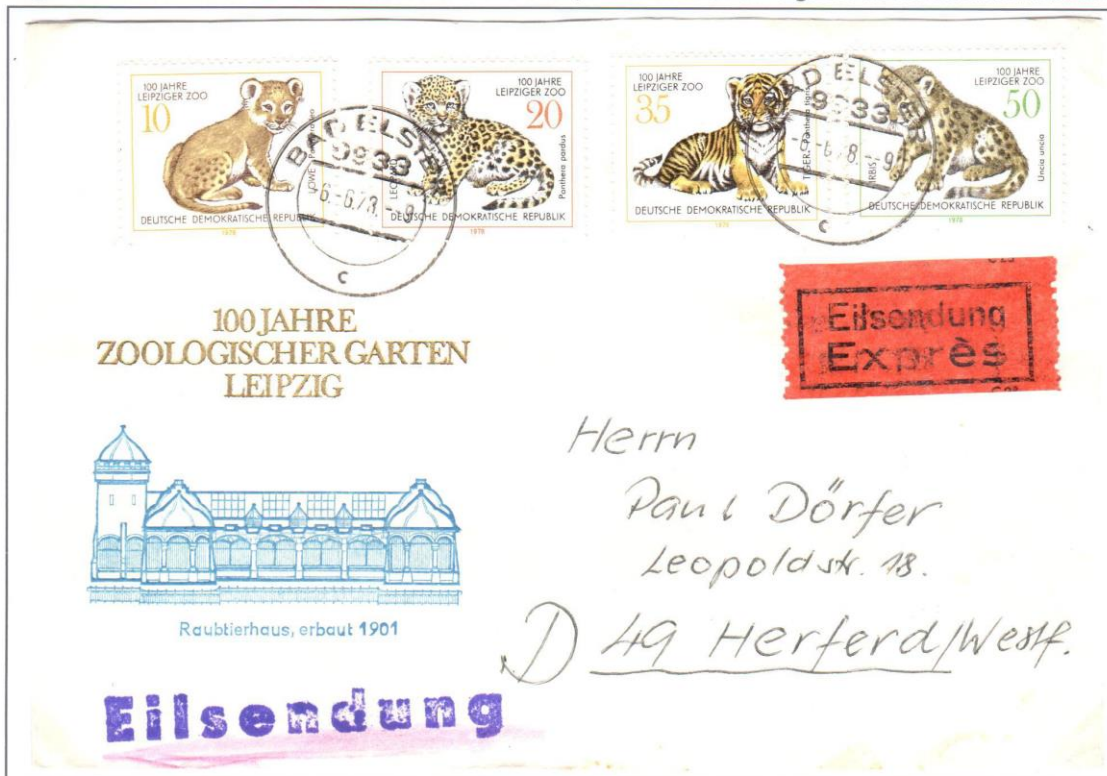 100 JAHRE
LEIPZIGER ZOO
10
LÖWE Panthera leo
DEUTSCHE DEMOKRATISCHE REPUBLIK
1978
100 JAHRE
LEIPZIGER ZOO
20
Panthera pardus
DEUTSCHE DEMOKRATISCHE REPUBLIK
1978
BAD ELSTER
9933
-6.-6.78.-9
c
100 JAHRE
LEIPZIGER ZOO
35
TIGER Panthera tigris
DEUTSCHE DEMOKRATISCHE REPUBLIK
1978
100 JAHRE
LEIPZIGER ZOO
50
IRBIS Uncia uncia
DEUTSCHE DEMOKRATISCHE REPUBLIK
1978
BAD ELSTER
9933
c
Eilsendung
Exprès
100 JAHRE
ZOOLOGISCHER GARTEN
LEIPZIG
Raubtierhaus, erbaut 1901
Herrn
Paul Dörfer
Leopoldstr. 18.
D 49 Herferd/Westf.
Eilsendung